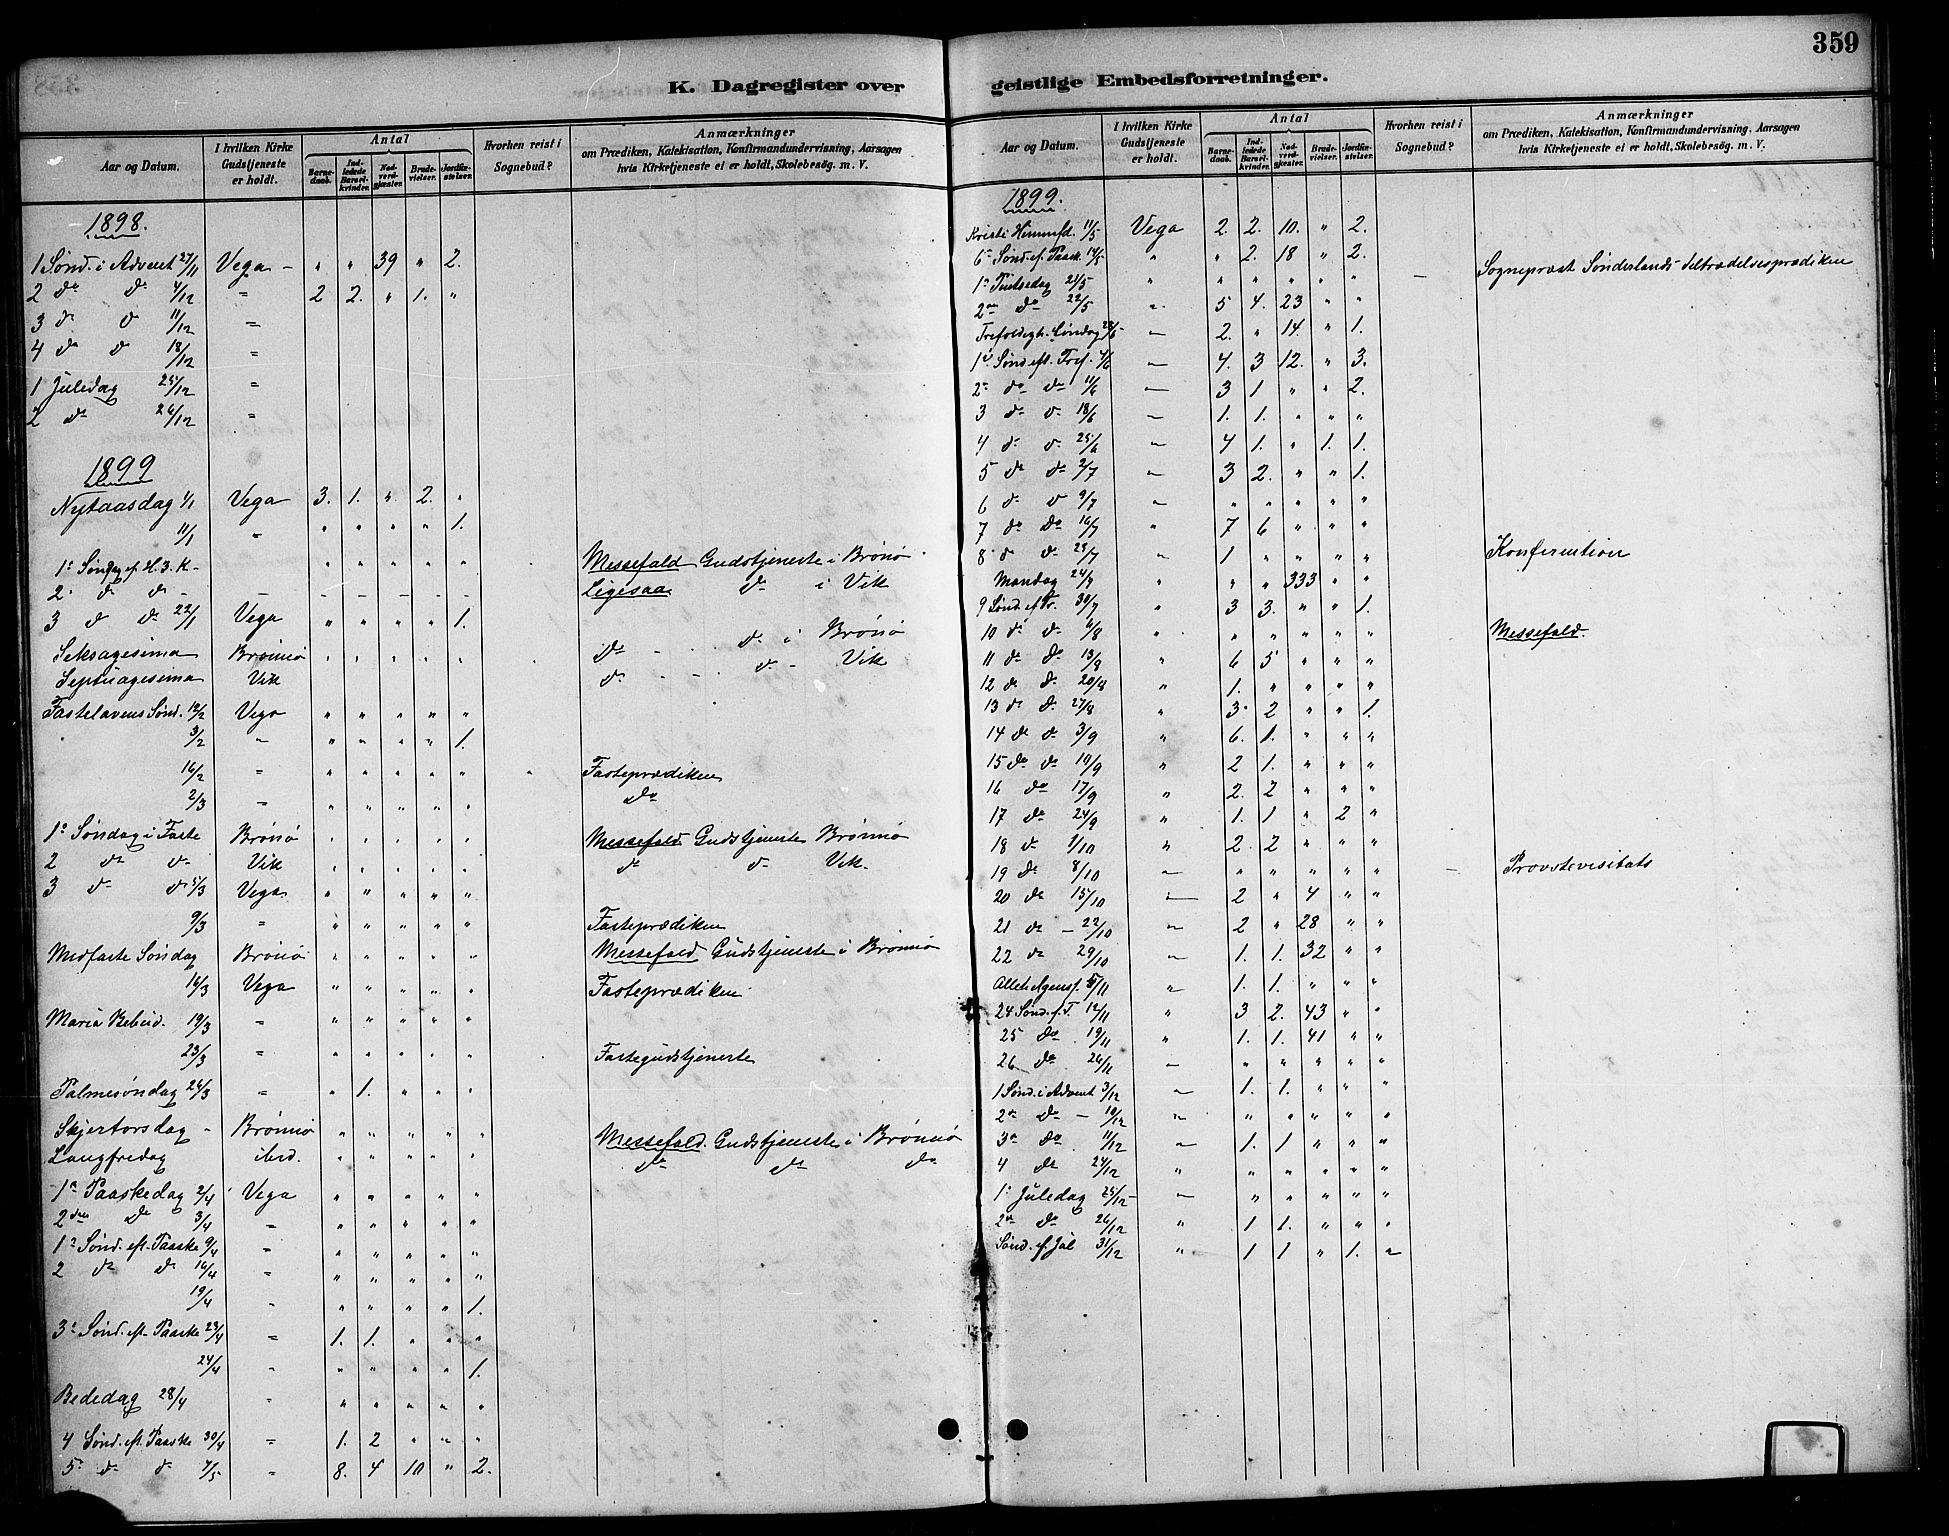 359
K. Dagregister over geistlige Embedsforretninger.
Aar og Datum. | I hvilken Kirke Gudstjeneste er holdt. | Antal | Barnedaab. | Indledede Barselkvinder. | Nadverdgjester. | Brudevielser. | Jordfæstelser. | Hvorhen reist i Sognebud? | Anmærkninger om Prædiken, Katekisation, Konfirmandundervisning, Aarsagen hvis Kirketjeneste ei er holdt, Skolebesøg. m. V.
1898.
1 Sønd. i Advent 27/11 Vega - " " 39 " 2.
2 do do 4/12 " 2 2. " 1. "
3 d d 11/12 "
4 do d 18/12 "
1 Juledag 25/12 "
2 do 26/12 "
1899
Nytaasdag 1/1 Vega 3. 1. " 2. "
11/1 " " " " " 1.
1' Søndag ef. H. 3. K - " " " " " Messefald Gudstjeneste i Brønø
2. d d - - - - - - Ligesaa do i Vik
3 d do 22/1 Vega " " " " 1.
Seksagesima Brønnø " " " " " do - do i Brønø
Septuagesima Vik do - - do - Vik
Fastelavens Sønd. 12/2 Vega " " " " "
3/2 " " " " " 1.
16/2 " " " " " " Fasteprædiken
2/3 " " " " " " do
1' Søndag i Faste Brønø " " " " " Messefald Gudstjeneste Brønnø
2 do do Vik " " " " " do do Vik.
3 do do 5/3 Vega " " " " "
9/3 " " " " " " Fasteprædiken
Midfaste Søndag Brønø " " " " " Messefald Gudstjeneste i Brønnø
16/3 Vega " " " " " Fasteprædiken
Maria Bebud. 19/3 " " " " " "
23/3 " " " " " " Fastegudstjeneste
Palmesøndag 26/3 " " 1. " " "
Skjertorsdag - Brønnø " " " " " Messefald. Gudstjeneste i Brønnø
Langfredag ibid. " " " " " do do do
1' Paaskedag 2/4 Vega " " " " "
2den do 3/4 " " " " " "
1' Sønd. eft. Paaske 9/4 " " " " " "
2 do do 16/4 " " " " " "
19/4 " " " " " 1.
3' Sønd. eft. Paaske 23/4 " 1. 1. " " "
24/4 " " " " " 1.
Bededag 28/4 " " " " " "
4 Sønd. eft. Paaske 30/4 " 1. 2 " " "
5 do d 7/5 " 8. 4 10 " 2.
Aar og Datum. | I hvilken Kirke Gudstjeneste er holdt. | Antal | Barnedaab. | Indledede Barselkvinder. | Nadverdgjester. | Brudevielser. | Jordfæstelser. | Hvorhen reist i Sognebud? | Anmærkninger om Prædiken, Katekisation, Konfirmandundervisning, Aarsagen hvis Kirketjeneste ei er holdt, Skolebesøg. m. V.
1899.
Kristi Himmelfd. 11/5 Vega 2. 2. 10. " 2.
6' Sønd. ef. Paask. 14/5 " " 2. 18 " 2.
1' Pintsedag 21/5 " " " " " " - Sogneprest Sønderlands tiltrædelsesprædiken
2den do 22/5 " 5 4. 23 " "
Trefoldigh. Søndag 28/5 " 2. " 14. " 1.
1' Sønd. eft. Tref. 4/6 " 4. 3 12. " 3.
2' do do 11/6 " 3 1 " " 2.
3 do d. 18/6 " 1. 1. " " "
4 do d. 25/6 " 4 1. " 1. 1.
5 do do 2/7 " 3 2. " " 1.
6 do d 9/7 " " " " " "
7 do do 16/7 " 7 6 " " "
8 d d. 23/7 " 1 " " " " Konfirmation
Mandag 24/7 " " " 333 " "
9 Sønd. ef. Tr. 30/7 " 3 3. " " 1.
10 d d. 6/8 " " " " " " Messefald.
11 do do. 13/8 " 6 5 " " "
12 do d. 20/8 " 1. " " " "
13 do d. 27/8 " 3. 2 " " 1.
14 do d. 3/9 " 6. 1. " " "
15 do do 10/9 " 2 1. " " "
16 do 17/9 " 2. 2 " " "
17 do 24/9 " 1. 1 " 2 "
18 do 1/10 " 2. 2 " " "
19 do 8/10 " " " " " " - Provstevisitats
20 do 15/10 " 2 " 4 " "
21 do - 22/10 " 2 " 28 " "
22 do 29/10 " 1. 1. 32 " "
Allehelgensf. 5/11 " 1. 1. " " "
24 Sønd. f. T. 12/11 " 3 2. 43 " "
25 do 19/11 " 1. 1. 41 " "
26 do 26/11 " " " " " "
1 Sønd. i Advent 3/12 " 1. 1. " " "
2den do - 10/12 " " " " " "
3' do 11/12 " 1. 1 " " "
4 do 24/12 " " " " " "
1' Juledag 25/12 - " " " " " "
2den do 26/12 " 1 1. " " "
Sønd. ef. Jul 31/12 " 1 1 " 1. "